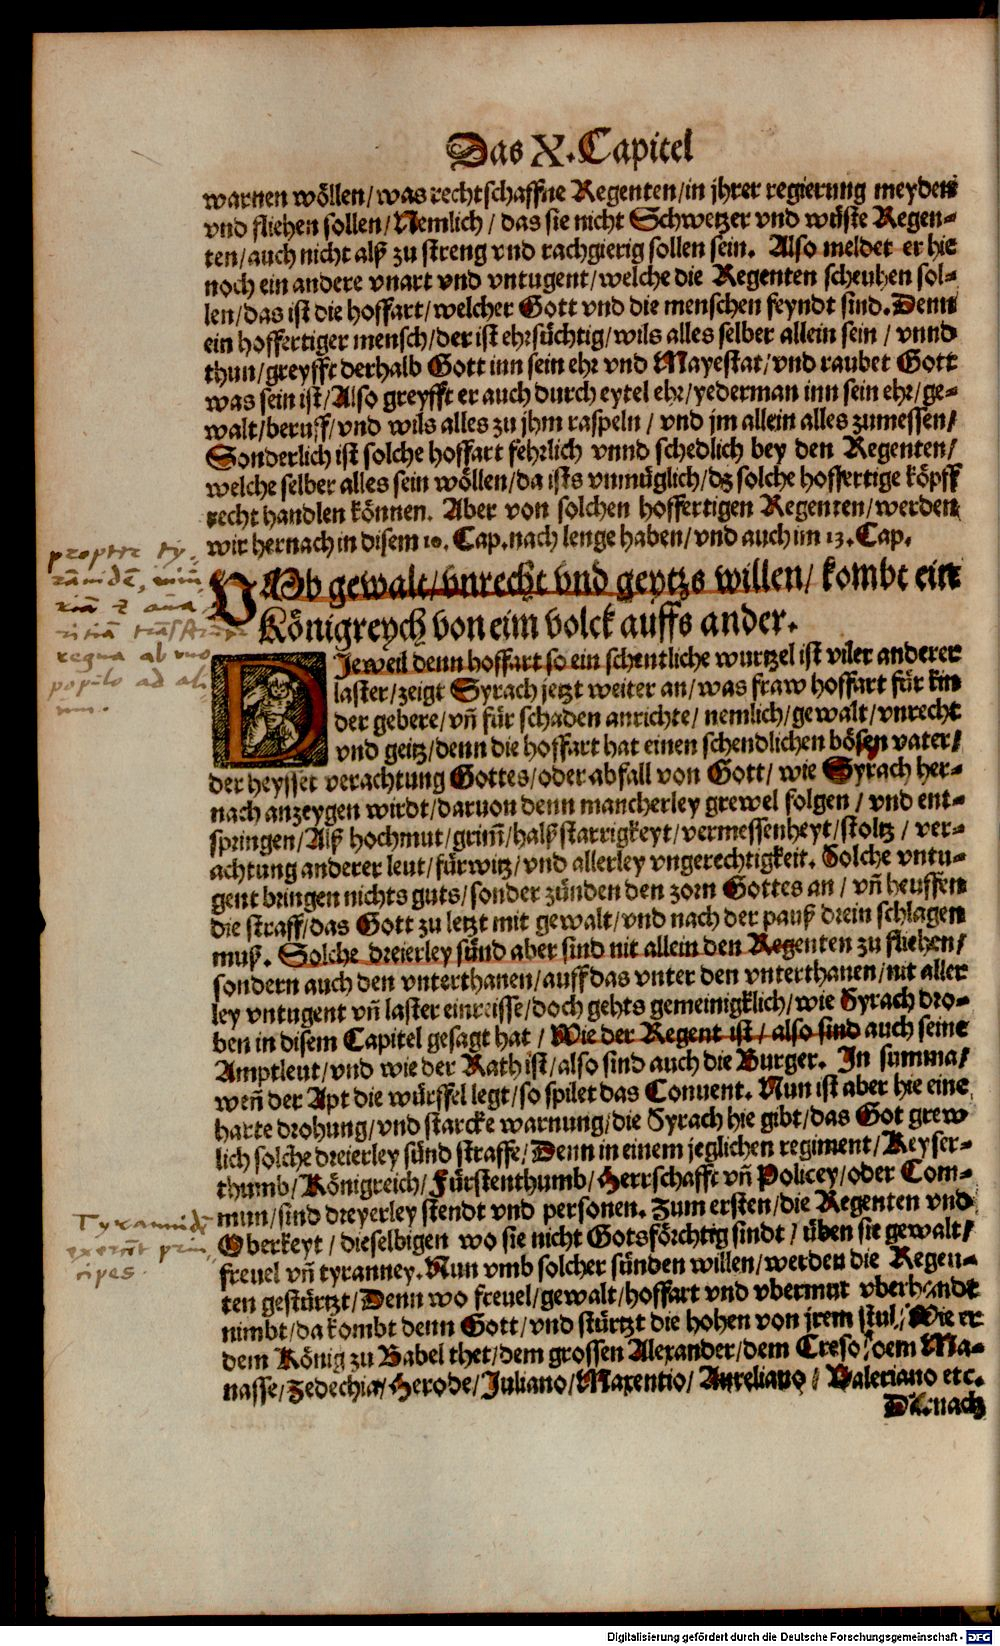 Das X. Capitel
warnen wöllen/was rechtschaffne Regenten/in jhrer regierung meyden
vnd fliehen sollen/Nemlich/ das sie nicht Schwetzer vnd wüste Regen-
ten/auch nicht alß zu streng vnd rachgierig sollen sein. Also meldet er hie
noch ein andere vnart vnd vntugent/welche die Regenten scheuhen sol-
len/das ist die hoffart/welcher Gott vnd die menschen feyndt sind. Denn
ein hoffertiger mensch/der ist ehrsüchtig/wils alles selber allein sein / vnnd
thun/greyfft derhalb Gott inn sein ehr vnd Mayestat/vnd raubet Gott
was sein ist/Also greyfft er auch durch eytel ehr/yederman inn sein ehr/ge-
walt/beruff/vnd wils alles zu jhm raspeln / vnd jm allein alles zumessen/
Sonderlich ist solche hoffart fehrlich vnnd schedlich bey den Regenten/
welche selber alles sein wöllen/da ists vnmüglich/dz solche hoffertige köpff
recht handlen können. Aber von solchen hoffertigen Regenten/werden
wir hernach in disem 10. Cap. nach lenge haben/vnd auch im 13. Cap.
propter ty-
VMb gewalt/vnrecht vnd geytzs willen/ kombt ein
Königreych von eim volck auffs ander.
regna ab vno
populo ad ali
um.
DIeweil denn hoffart so ein schentliche wurtzel ist viler anderer
laster/zeigt Syrach jetzt weiter an/was fraw hoffart für kin
der gebere/vñ für schaden anrichte/ nemlich/gewalt/vnrecht
vnd geitz/denn die hoffart hat einen schendlichen bösen vater/
der heysset verachtung Gottes/oder abfall von Gott/ wie Syrach her-
nach anzeygen wirdt/daruon denn mancherley grewel folgen / vnd ent-
springen/Alß hochmut/grim̃/halßstarrigkeyt/vermessenheyt/stoltz / ver-
achtung anderer leut/fürwitz/vnd allerley vngerechtigkeit. Solche vntu-
gent bringen nichts guts/sonder zünden den zorn Gottes an / vñ heuffen
die straff/das Gott zu letzt mit gewalt/vnd nach der pauß drein schlagen
muß. Solche dreierley sünd aber sind nit allein den Regenten zu fliehen/
sondern auch den vnterthanen/auff das vnter den vnterthanen/nit aller
ley vntugent vñ laster einreisse/doch gehts gemeinigklich/wie Syrach dro-
ben in disem Capitel gesagt hat / Wie der Regent ist/ also sind auch seine
Amptleut/vnd wie der Rath ist/also sind auch die Burger. In summa/
weñ der Apt die würffel legt/so spilet das Conuent. Nun ist aber hie eine
harte drohung/vnd starcke warnung/die Syrach hie gibt/das Got grew
lich solche dreierley sünd straffe/Denn in einem jeglichen regiment/Keyser-
thumb/Königreich/Fürstenthumb/Herrschafft vñ Policey/oder Com-
mun/sind dreyerley stendt vnd personen. Zum ersten/die Regenten vnd
Tyrannidẽ
exercẽt prin
cipes.
Oberkeyt / dieselbigen wo sie nicht Gotsförchtig sindt / üben sie gewalt/
freuel vñ tyranney. Nun vmb solcher sünden willen/werden die Regen-
ten gestürtzt/Denn wo freuel/gewalt/hoffart vnd vbermut vberhandt
nimbt/da kombt denn Gott/vnd stürtzt die hohen von jrem stul/ Wie er
dem König zu Babel thet/dem grossen Alexander/dem Creso/dem Ma-
nasse/Zedechia/Herode/Juliano/Maxentio/ Aureliano / Valeriano etc.
Darnach
Digitalisierung gefördert durch die Deutsche Forschungsgemeinschaft - DFG